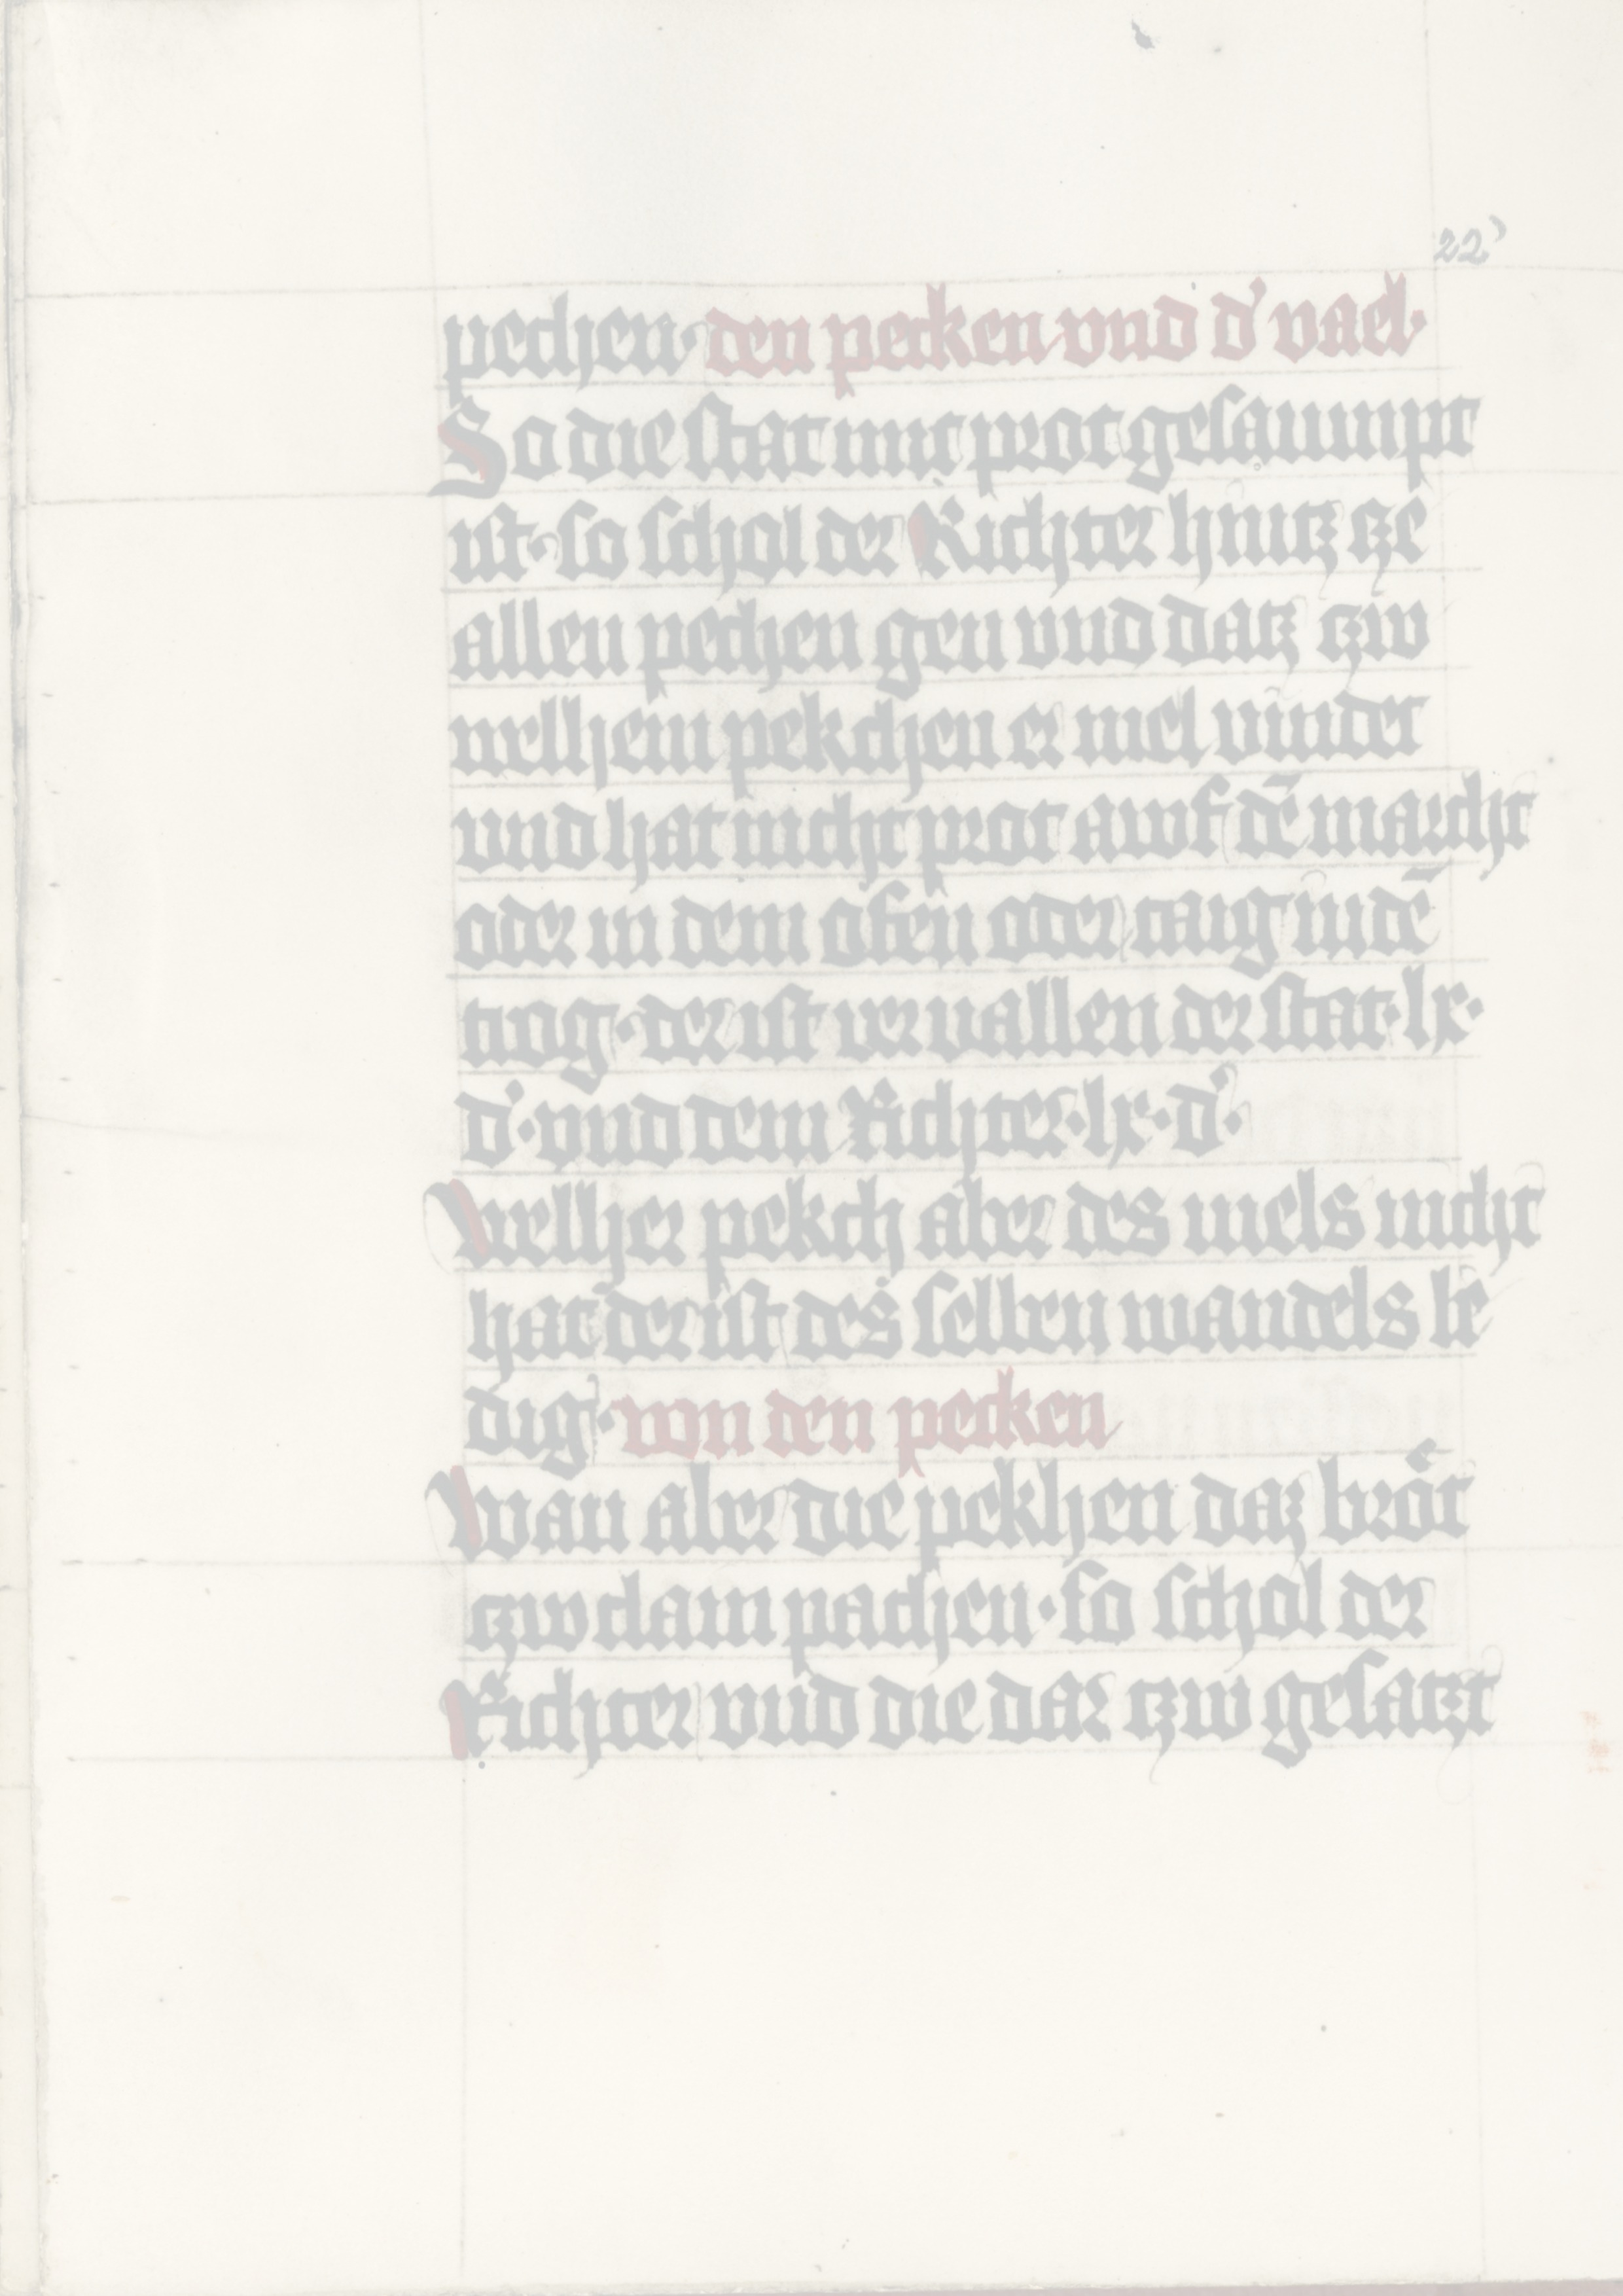 22
pechen · den pecken vnd d' vael ·
So die stat mit prot gesaumpt
ist · so schol der Richter hintz tze
allen pechen gen vnd datz tzw
welhem pekchen er mel vindet
vnd hat nicht prot awf dē marcht
oder in dem ofen oder taig in dē
trog · der ist vervallen der stat · lx ·
d' · vnd dem Richter · lx · d' ·
Welher pekch aber des mels nicht
hat der ist des selben wandels le
dig · von den pecken
Wan aber die pekhen daz brot
tzw clain pachen · so schol der
Richter vnd die dar tzw gesatzt